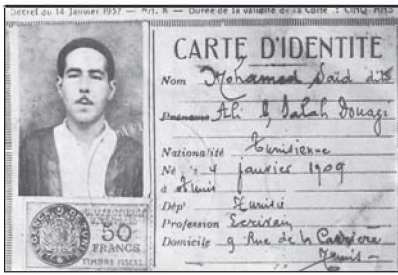 Décret du 14 Janvier 1937 — Art. 8 — Durée de la validité de la Carte : CINQ ANS
CARTE D'IDENTITÉ
Nom Mohamed Saïd dit
Prénoms Ali b Salah Douagi
Nationalité Tunisienne
Né 4 janvier 1909
à Tunis
Dép' Tunisie
Profession Ecrivain
Domicile 9 Rue de la Carrière
Tunis
50
FRANCS
TIMBRE FISCAL